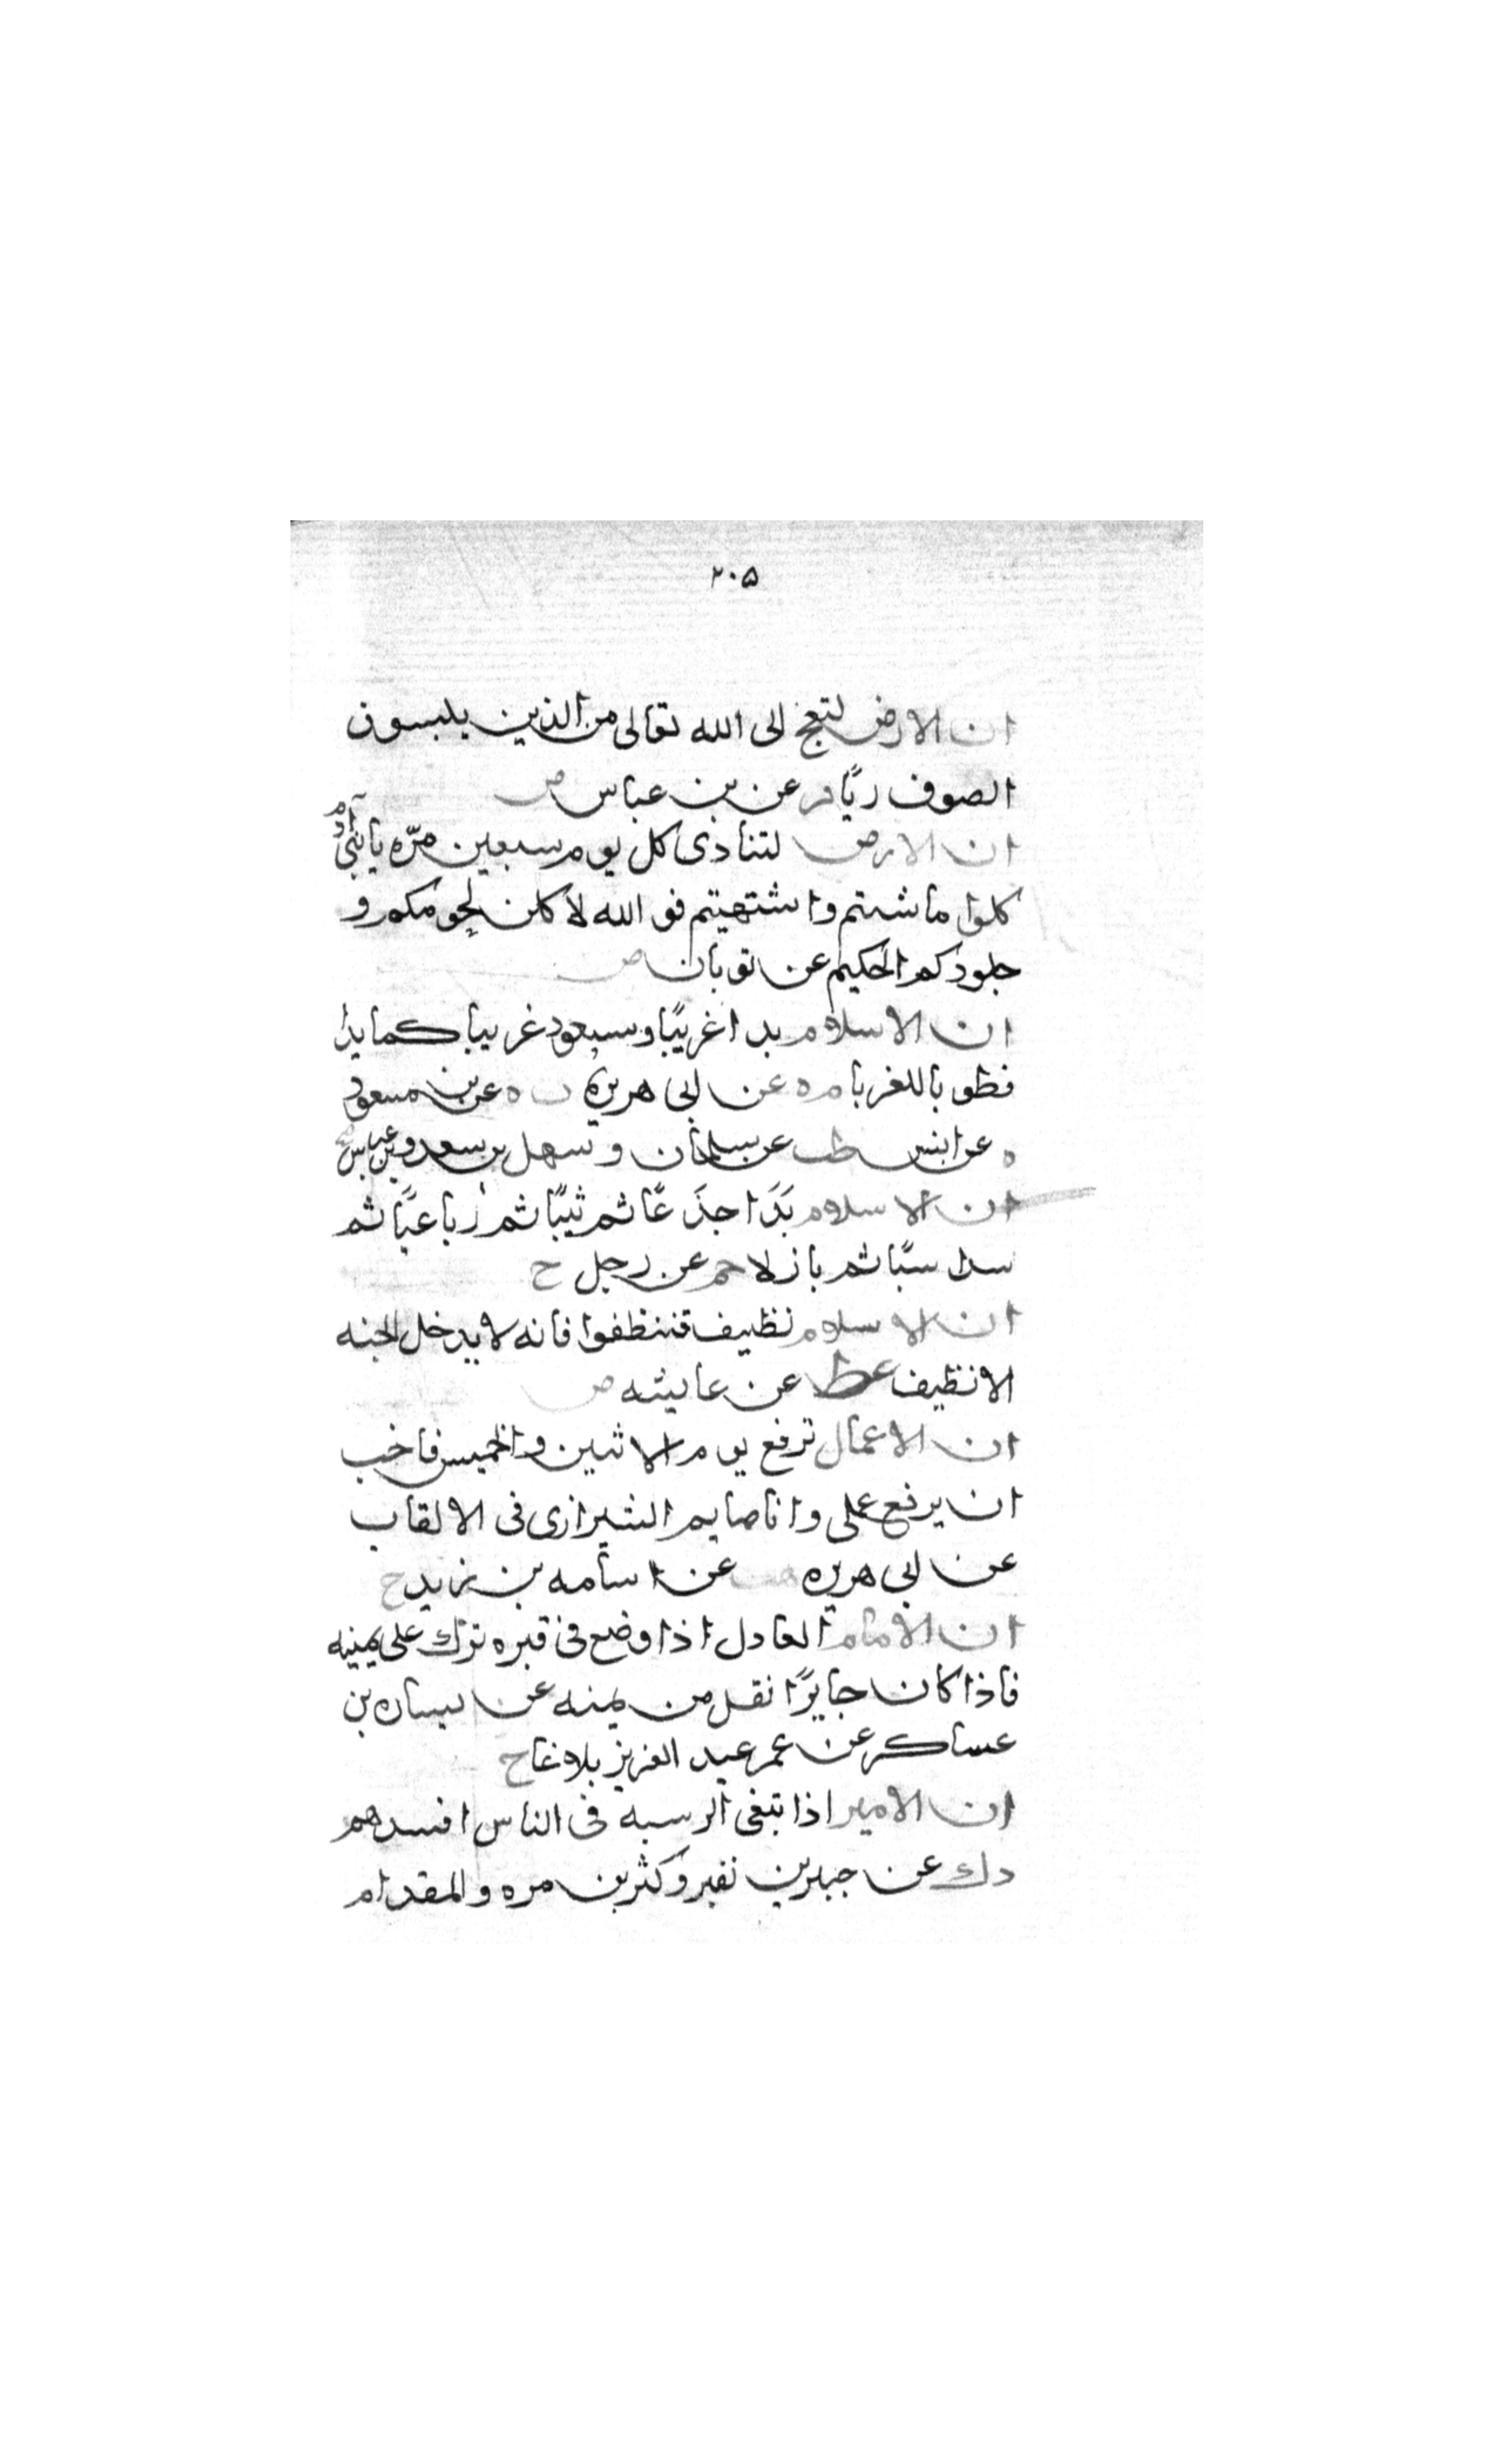 ٢٠٥
ان الارض لتعج الى الله تعالى من الذين يلبسون
الصوف ريًا فر عن بن عباس ض
ان الارض لتنادى كل يوم سبعين مرّه يا بنى آدم
كلوا ما شيتم واشتهيتم فو الله لا كلن لحومكم و
جلودكم الحكيم عن ثوبان ض
ان الاسلام بدا غريبًا وسيعود غريبا كما بدا
فطوبا للغربا م ه عن ابى هريره ت ه عن بن مسعود
ه عن انس طب عن سلمان وسهل بن سعد وبن عباس صح
ان الاسلام بَدَا جذَعًا ثم ثنيًا ثم رُباعيًا ثم
سداسيًا ثم بازلا حم عن رجل ح
ان الاسلام نظيف فتنظفوا فانه لا يدخل الجنه
الا نظيف خط عن عايشه ض
ان الاعمال ترفع يوم الاثنين والخميس فاحب
ان يرفع عملى وانا صايم الشيرازى فى الالقاب
عن ابى هريره هب عن اسامه بن زيد ح
ان الامام العادل اذا وضع فى قبره ترك على يمينه
فاذا كان جايرًا نقل من يمنه عن يساره بن
عساكر عن عمر عبد العزيز بلاغا ح
ان الامير اذا بتغى الريبه فى الناس افسدهم
د ك عن جبير بن نفير وكثير بن مره والمقدام